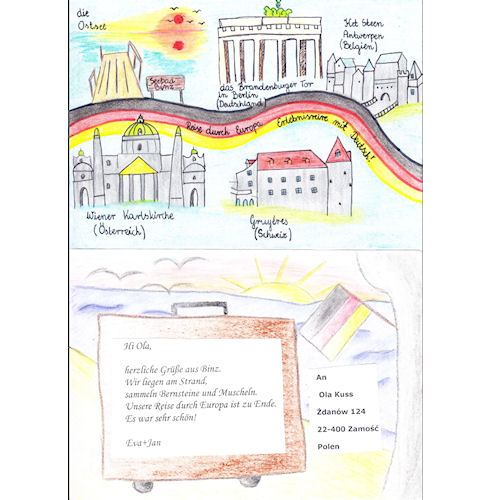 die
Ostsee
Seebad
Binz
das Brandenburger Tor
in Berlin
(Deutschland)
Het Steen
Antwerpen
(Belgien)
Reise durch Europa Erlebnisreise mit Deutsch!
Wiener Karlskirche
(Österreich)
Gruyères
(Schweiz)
Hi Ola,
herzliche Grüße aus Binz.
Wir liegen am Strand,
sammeln Bernsteine und Muscheln.
Unsere Reise durch Europa ist zu Ende.
Es war sehr schön!
Eva+Jan
An
Ola Kuss
Żdanów 124
22-400 Zamość
Polen